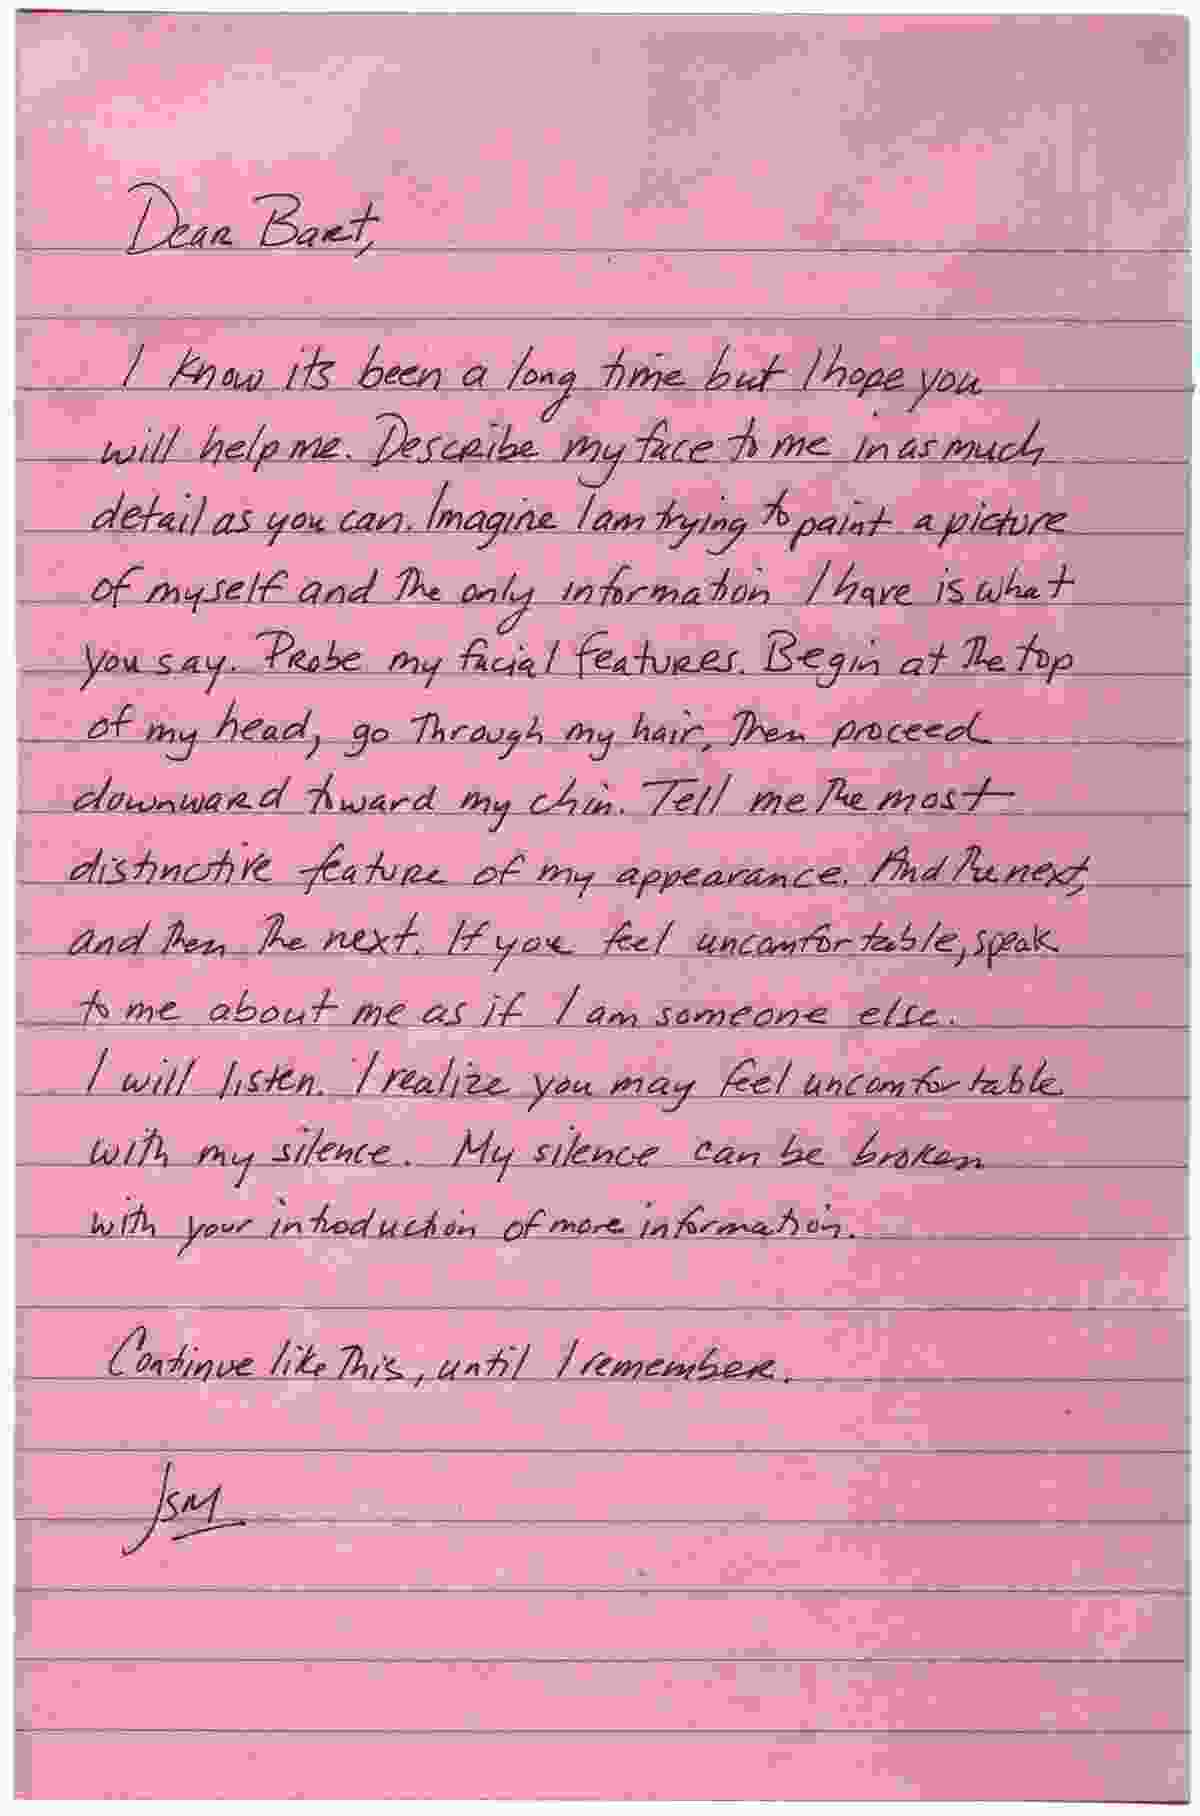 Dear Bart,
I know its been a long time but I hope you
will help me. Describe my face to me in as much
detail as you can. Imagine I am trying to paint a picture
of myself and the only information I have is what
you say. Probe my facial features. Begin at the top
of my head, go through my hair, then proceed
downward toward my chin. Tell me the most
distinctive feature of my appearance. And the next,
and then the next. If you feel uncomfortable, speak
to me about me as if I am someone else.
I will listen. I realize you may feel uncomfortable
with my silence. My silence can be broken
with your introduction of more information.
Continue like this, until I remember.
JSM